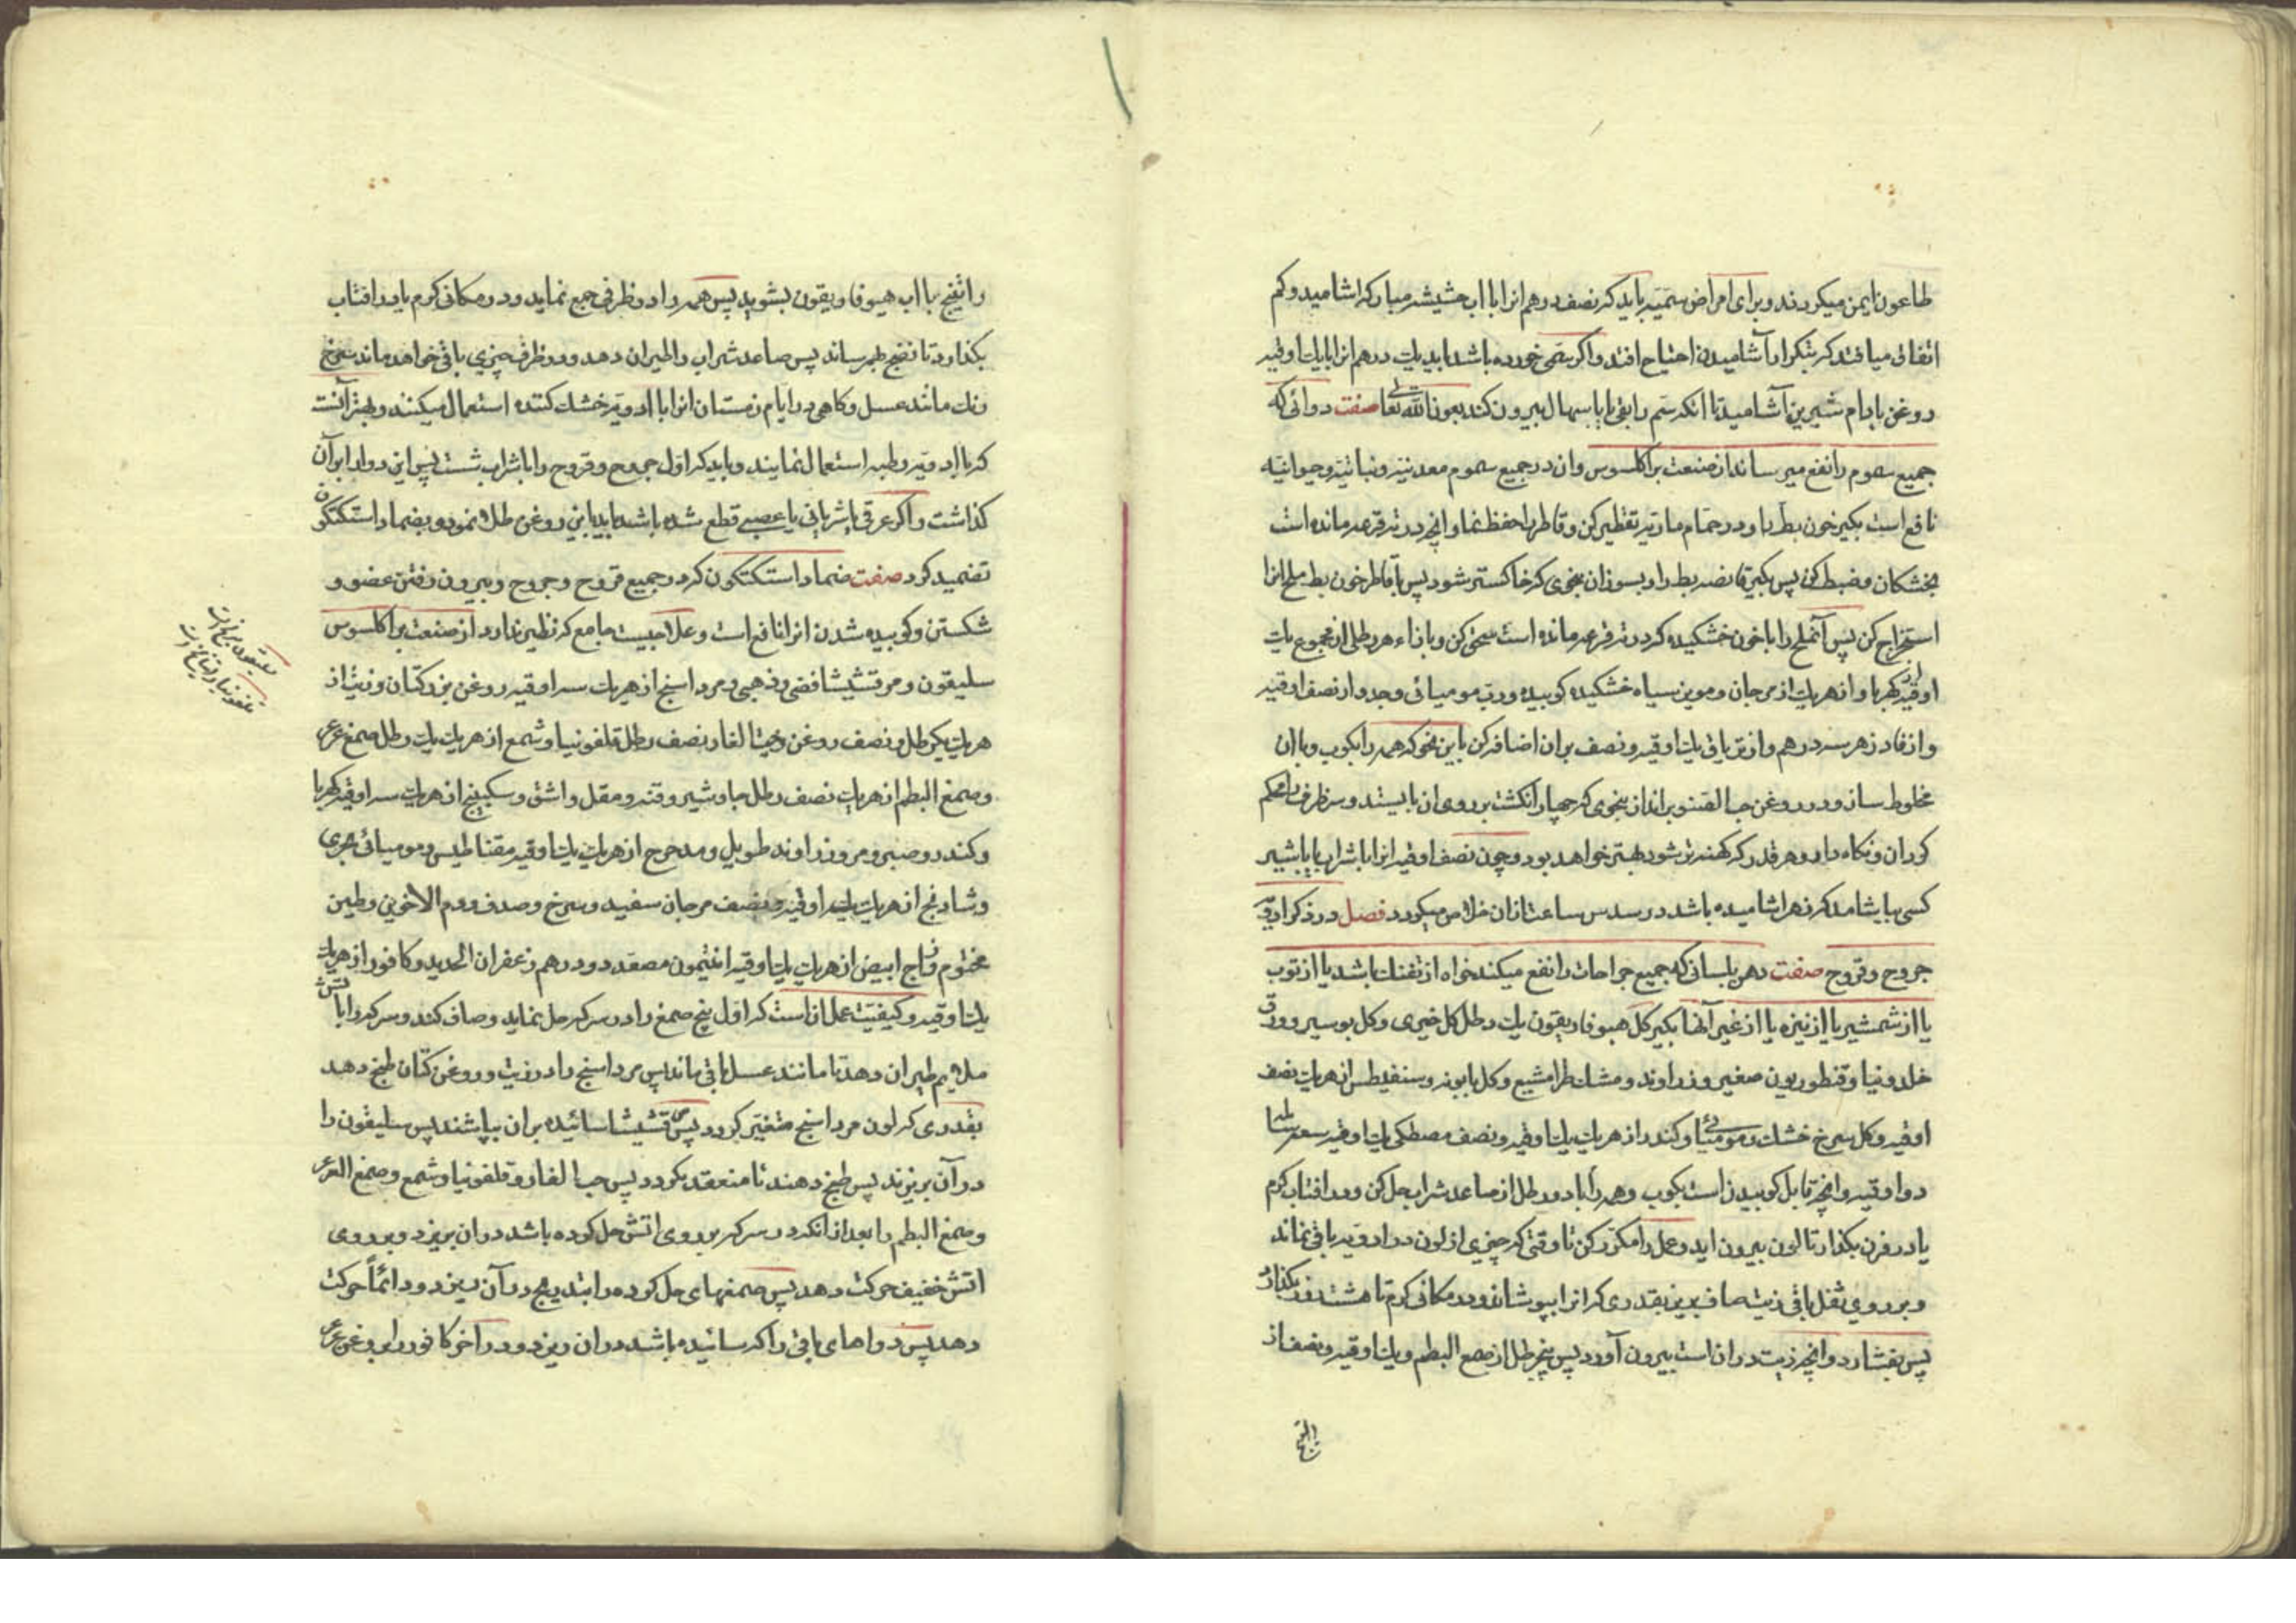 طاعون ایمن میکردند و برای امراض سمّیّه باید که نصف درهم انرا با اب حشیشه مبارکه اشامید و کم
اتفاق میافتد که بتکرار آشامیدن احتیاج افتد و اکر سمّی خورده باشد باید یک درهم انرا با یک اوقیه
روغن بادام شیرین آشامید تا انکه سم را بقی یا باسهال بیرون کند بعون الله تعالی صفت دوائی که
جمیع سموم را نفع میرساند از صنعت براکلسوس و ان در جمیع سموم معدنیّه و نباتیّه و حیوانیّه
نافع است بکیر خون بط را و در حمّام ماریّه تقطیر کن و قاطر را حفظ نما و انچه در ته قرعه مانده است
بخشکان و ضبط کن پس بکیر قانصه بط را و بسوزان بنحوی که خاکستر شود پس با قاطر خون بط ملح انرا
استخراج کن پس آنملح را با خون خشکیده که در ته قرعه مانده است سحق کن و بازاء هر رطلی از مجموع یک
اوقیه کهربا و از هر یک از مرجان و موین سیاه خشکیده کوبیده و رب مومیائی وجدوار نصف اوقیه
و از فادزهر سه درهم و از تریاق یک اوقیه و نصف بر ان اضافه کن باین نحو که همه را بکوب و با ان
مخلوط ساز و در روغن حب الصنوبر انداز بنحوی که چهار انکشت بر روی ان بایستد و سر ظرف را محکم
کردان و نکاه دار و هر قدر که کهنه تر شود بهتر خواهد بود و چون نصف اوقیه انرا با شراب یا با شیر
کسی بیاشامد که زهر اشامیده باشد در سدس ساعت ازان خلاص میکردد فصل در ذکر ادویّه
جروح و قروح صفت دهن بلسانی که جمیع جراحات را نفع میکند خواه از تفنک باشد یا از توب
یا از شمشیر یا از نیزه یا از غیر آنها بکیر کل هیوفاریقون یک رطل کل خیری و کل بوسیر و ورق
خلدونیا و قنطوریون صغیر و زراوند و مشک طرامشیع و کل بابونه و سنفیطس از هر یک نصف
اوقیه و کل سرخ خشک و مومیائی و کندر از هر یک یک اوقیه و نصف مصطکی یک اوقیه سعر
دو اوقیه و انچه قابل کوبیدن است بکوب و همه را با دو رطل از صاعد شراب حل کن و در افتاب کرم
یا در فرن بکذار تا لون بیرون اید و عمل را مکرر کن تا وقتی که چیزی از لون در ادویّه باقی نماند
و بر روی ثفل باقی زیت صاف بریز بقدری که انرا بپوشاند و در مکانی کرم تا هشت روز بکذار
پس بفشارد و انچه زیت در ان است بیرون آورد پس پنج رطل از صمغ البطم و یک اوقیه و نصف از
راتینج با اب هیوفاریقون بشوید پس همه را در ظرفی جمع نماید و در مکانی کرم یا در افتاب
بکذارد تا نضج بهم رساند پس صاعد شراب را طیران دهد و در ظرف چیزی باقی خواهد ماند سرخ
رنک مانند عسل و کاهی در ایام زمستان انرا با ادویّه خشک کننده استعمال میکنند و بهتر آنست
که با ادویّه رطبه استعمال نمایند و باید که اول جروح و قروح را با شراب شست پس این دوا را بر آن
کذاشت و اکر عرقی یا شریانی یا عصبی قطع شده باشد باید باین روغن طلا نمود و بضماد استکتکون
تضمید کرد صفت ضماد استکتکون که در جمیع قروح و جروح و بیرون رفتن عضو و
شکستن و کوبیده شدن انرا نافع است و علاجیست جامع که نظیر ندارد از صنعت براکلسوس
سلیقون و مرقشیشا فضی و ذهبی و مرداسنج از هر یک سه اوقیه روغن بزر کتان و زیت از
هر یک یکرطل و نصف روغن و حب الغار نصف رطل قلفونیا و شمع از هر یک یک رطل صمغ عرعر
و صمغ البطم از هر یک نصف رطل جاوشیر و قنه و مقل و اشق و سکبینج از هر یک سه اوقیه کهربا
و کندر و صبر و مر و زراوند طویل و مدحرج از هر یک یک اوقیه مقناطیس و مومیائی
و شادنج از هر یک یک اوقیه و نصف مرجان سفید و سرخ و صدف و دم الاخوین و طین
مختوم و زاج ابیض از هر یک یک اوقیه انتیمون مصعد دو درهم زعفران الحدید و کافور از هر یک
یک اوقیه و کیفیّت عمل ان است که اول پنج صمغ را در سرکه حل نماید و صاف کند و سرکه را باتش
ملایم طیران دهد تا مانند عسل باقی ماند پس مرداسنج را در زیت و روغن کتان طبخ دهد
بقدری که لون مرداسنج متغیّر کردد پس مرقشیشا سائیده بر ان بپاشند پس سلیقون را
در آن بریزند پس طبخ دهند تا منعقد بکردد پس حب الغار و قلفونیا و شمع و صمغ العرعر
و صمغ البطم را بعد از انکه در سرکه بر روی اتش حل کرده باشد در ان بریزد و بر روی
اتش خفیف حرکت دهد پس صمغهای حل کرده را بتدریج در آن ریزد و دائماً حرکت
دهد پس دواهای باقی را که سائیده باشد در ان ریزد و در اخر کافور را بروغن عرعر